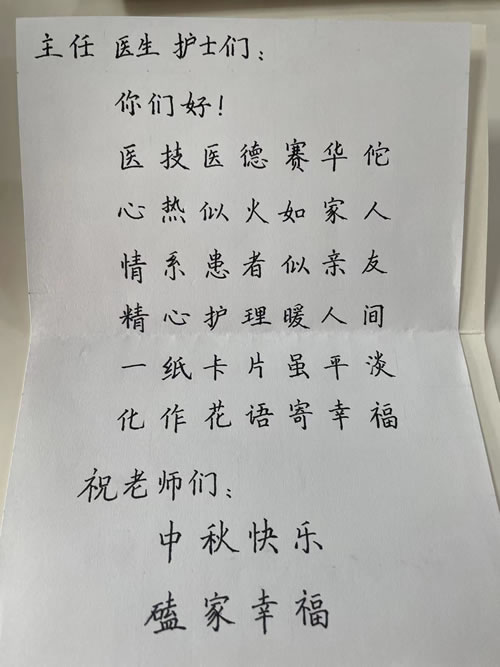 主任 医生 护士们：
你们好！
医技医德赛华佗
心热似火如家人
情系患者似亲友
精心护理暖人间
一纸卡片虽平淡
化作花语寄幸福
祝老师们：
中秋快乐
磕家幸福